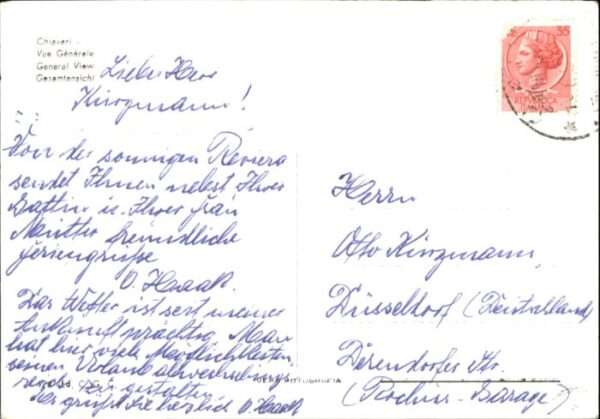 Chiavari -
Vue Générale
General View
Gesamtansicht
Lieber Herr
Kinzmann!
Von der sonnigen Reviera
sendet Ihnen nebst Ihrer
Gattin u. Ihrer Frau
Mutter freundliche
Feriengrüsse
O. Haak.
Das Wetter ist seit meiner
Ankunft prächtig. Man
hat hier viele Möglichkeiten
seinen Urlaub abwechslungs
zu gestalten
Es grüßt Sie herzlich O. Haak
35
Herrn
Otto Kinzmann
Düsseldorf (Deutschland)
Derendorfer Str.
(Rochus-Garage)